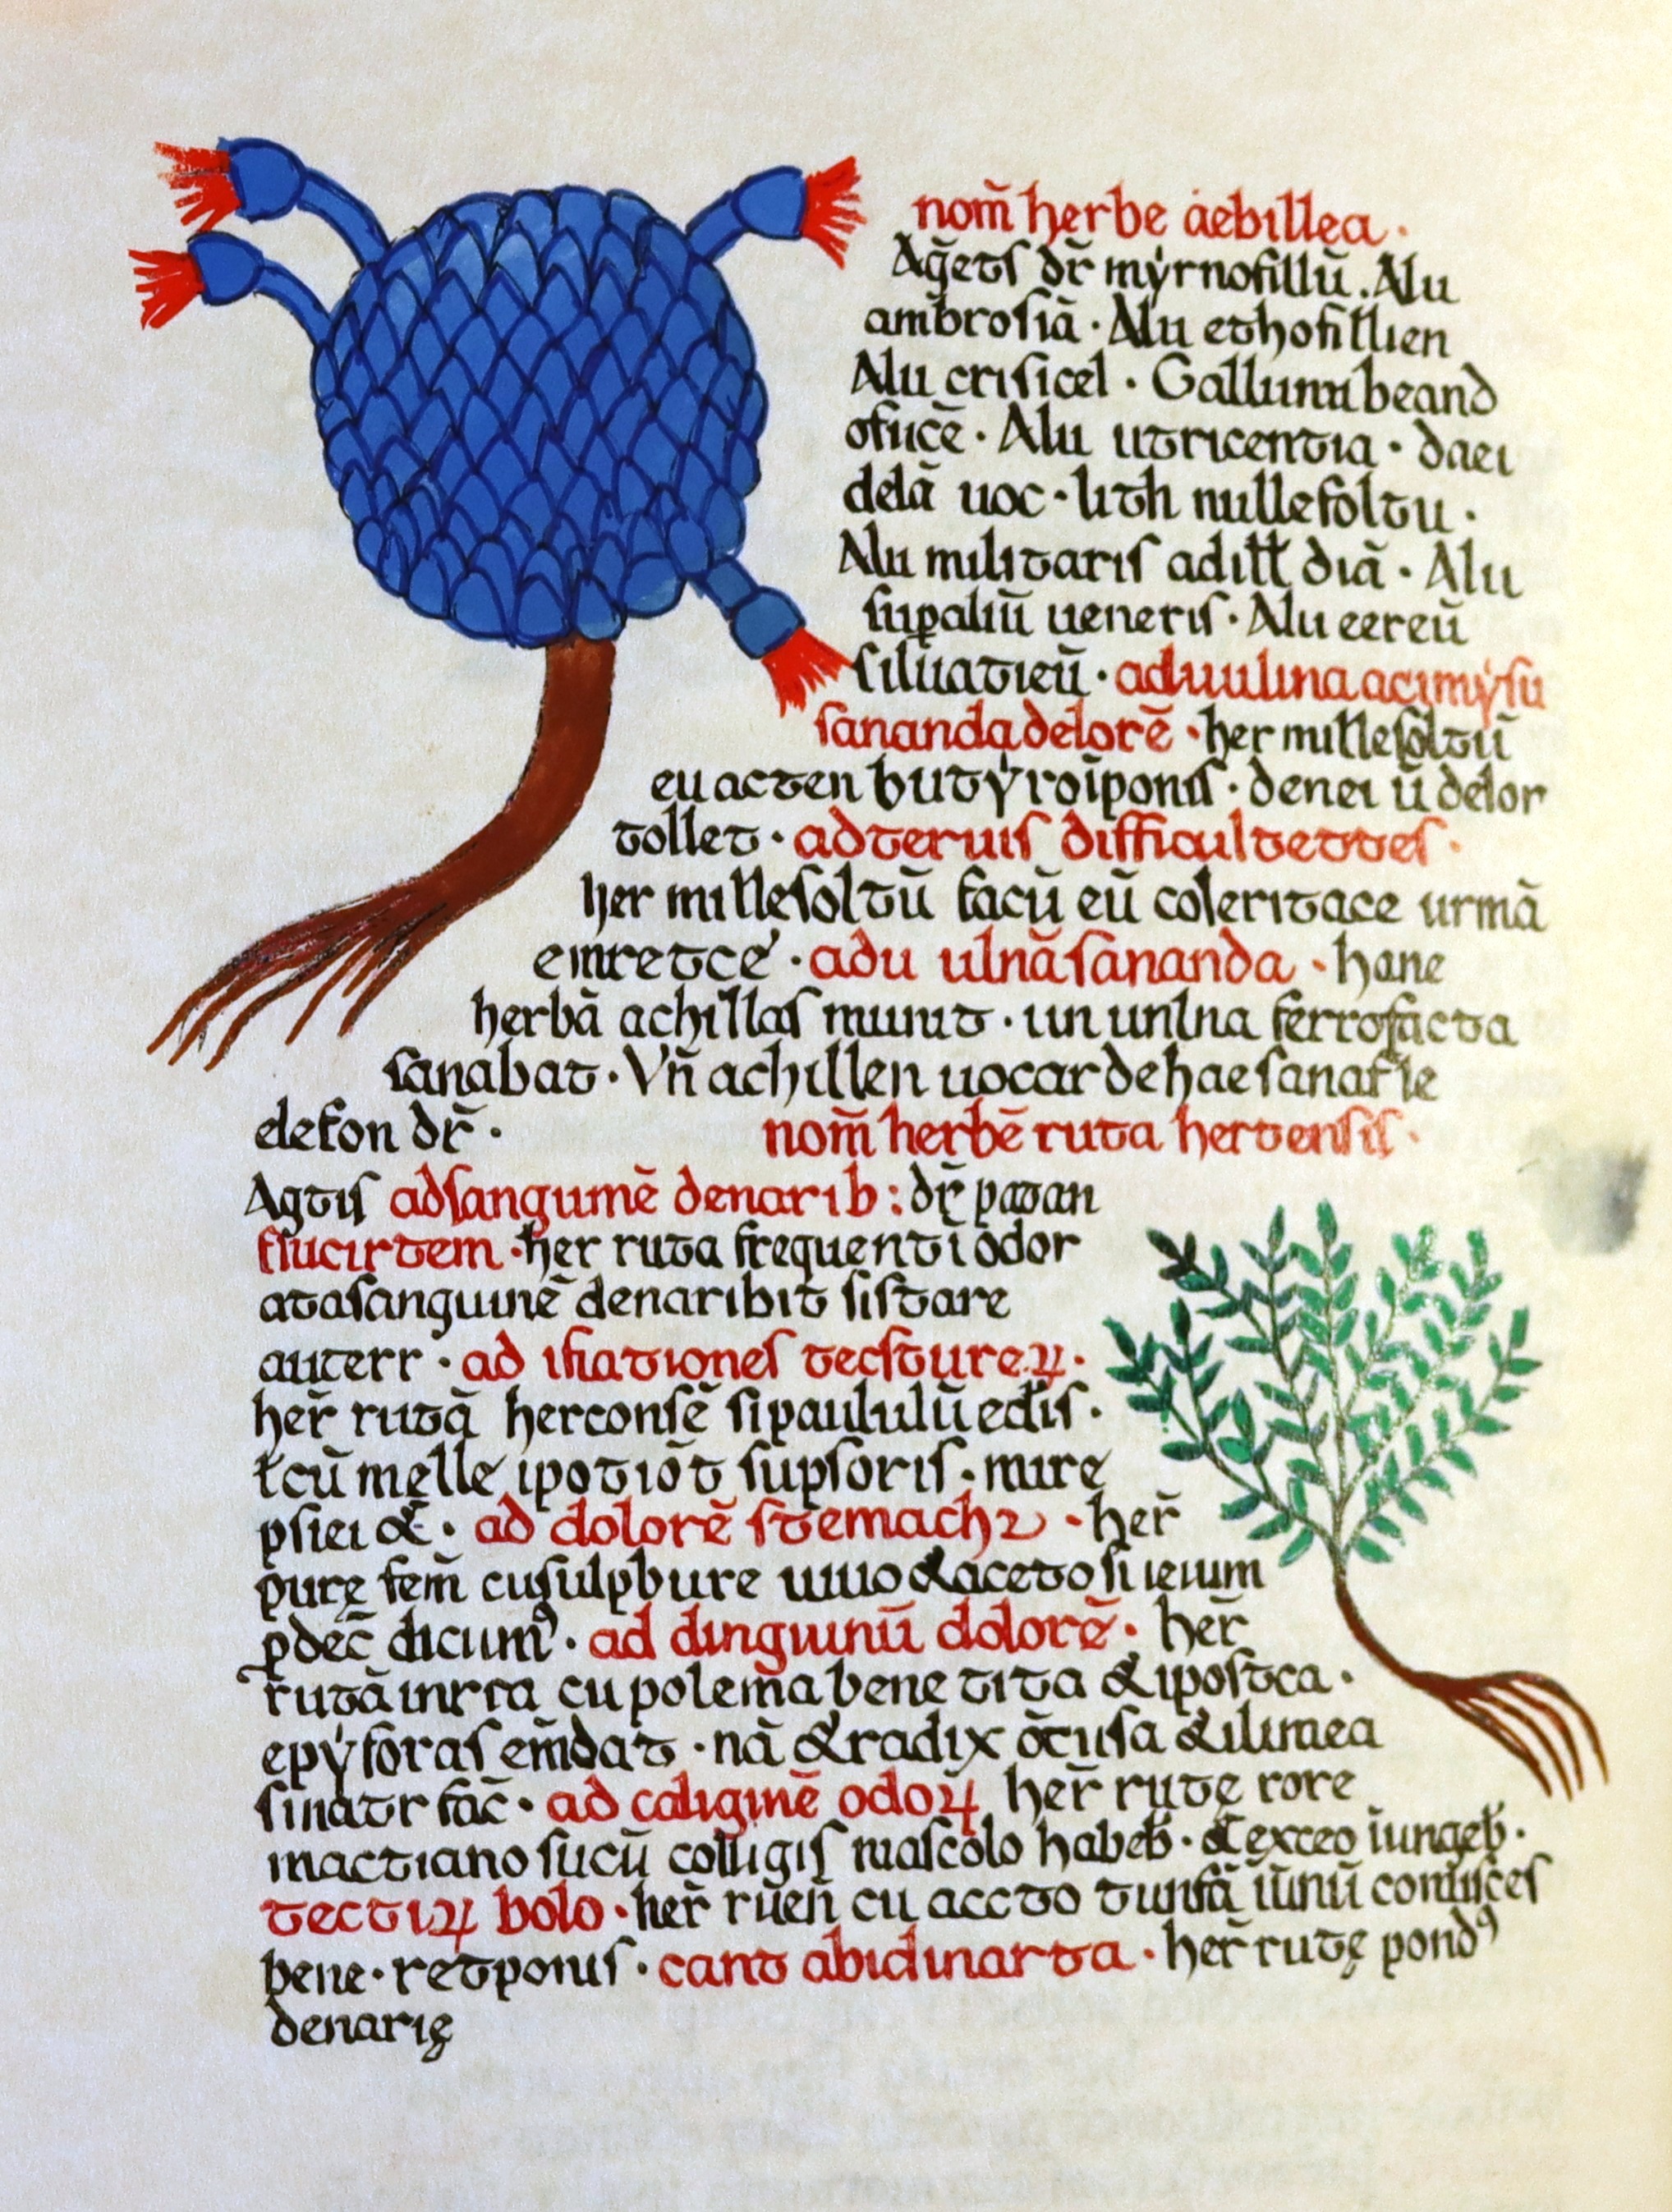 nom̄ herbe aebillea.
Aḡets dr̄ myrnofillū. Alu
ambrosiā · Alu ethofillien
Alu crisicel · Gallumbeand
ofucē · Alu utricentia · daci
delā uoc · lith nullefoltu ·
Alu militaris aditt diā · Alu
supaliū ueneris · Alu eereū
siluaticū · aduulina acimysu
sananda delorē · her millesoltū
eu acten butyroiponis · denei ū delor
tollet · adteruis difficultettes ·
her millesoltū facū eū coleritace urmā
emretce · adu ulnā sananda · hane
herbā achillas munut · un unlna ferrofacta
sanabat · Vn̄ achillen uocardehaesanatie
elefon dr̄ · nom̄ herbē ruta hertensis ·
Agtis adsangumē denarib : dr̄ patan
flucirtem · her ruta frequenti odor
atasanguinē denaribit sistare
aucerr · ad ifiationes tecsture ꝝ ·
her̄ rutā herconsē si paululū edis ·
tcū melle ipotiōt supsoris · mire
psiei & · ad dolorē stemach2 · her̄
purę fem̄ cusulpbure uiuo & aceto si ieium
pdec̄ dicum⁹ · ad dinguinū dolorē · her̄
rutā inrra cu polem̄a bene tita & ipostca ·
epyforas em̄dat · nā & radix ōtusa & ilimea
sinatr fac̄ · ad caliginē odoꝝ her̄ rutę rore
mactiano sucū colligis mascolo habeb · & exceo iungeb ·
tectiꝝ bolo · her̄ rūen̄ cu accto tunsā iūnū comisces
bene · retponis · cant abidinarta · her̄ rutę pond⁹
denarię